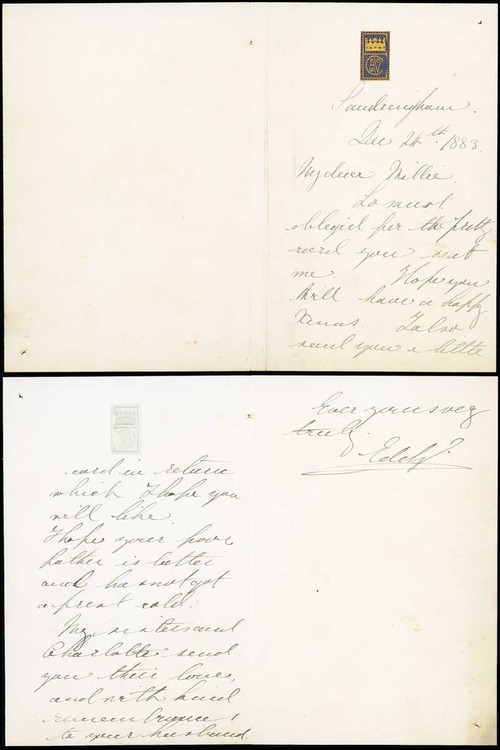 Sandringham.
Dec 24th. 1883.
My dear Millie.
So must
obleged for the pretty
card you sent
me. Hope you
will have a happy
Xmas. I also
send you a little
card in return
which I hope you
will like.
I hope your poor
father is better
and has not got
a great cold.
My sisters and
Charlotte send
you their love,
and with kind
remembrance
to your husband.
Ever yours very
truly.
Eddy.